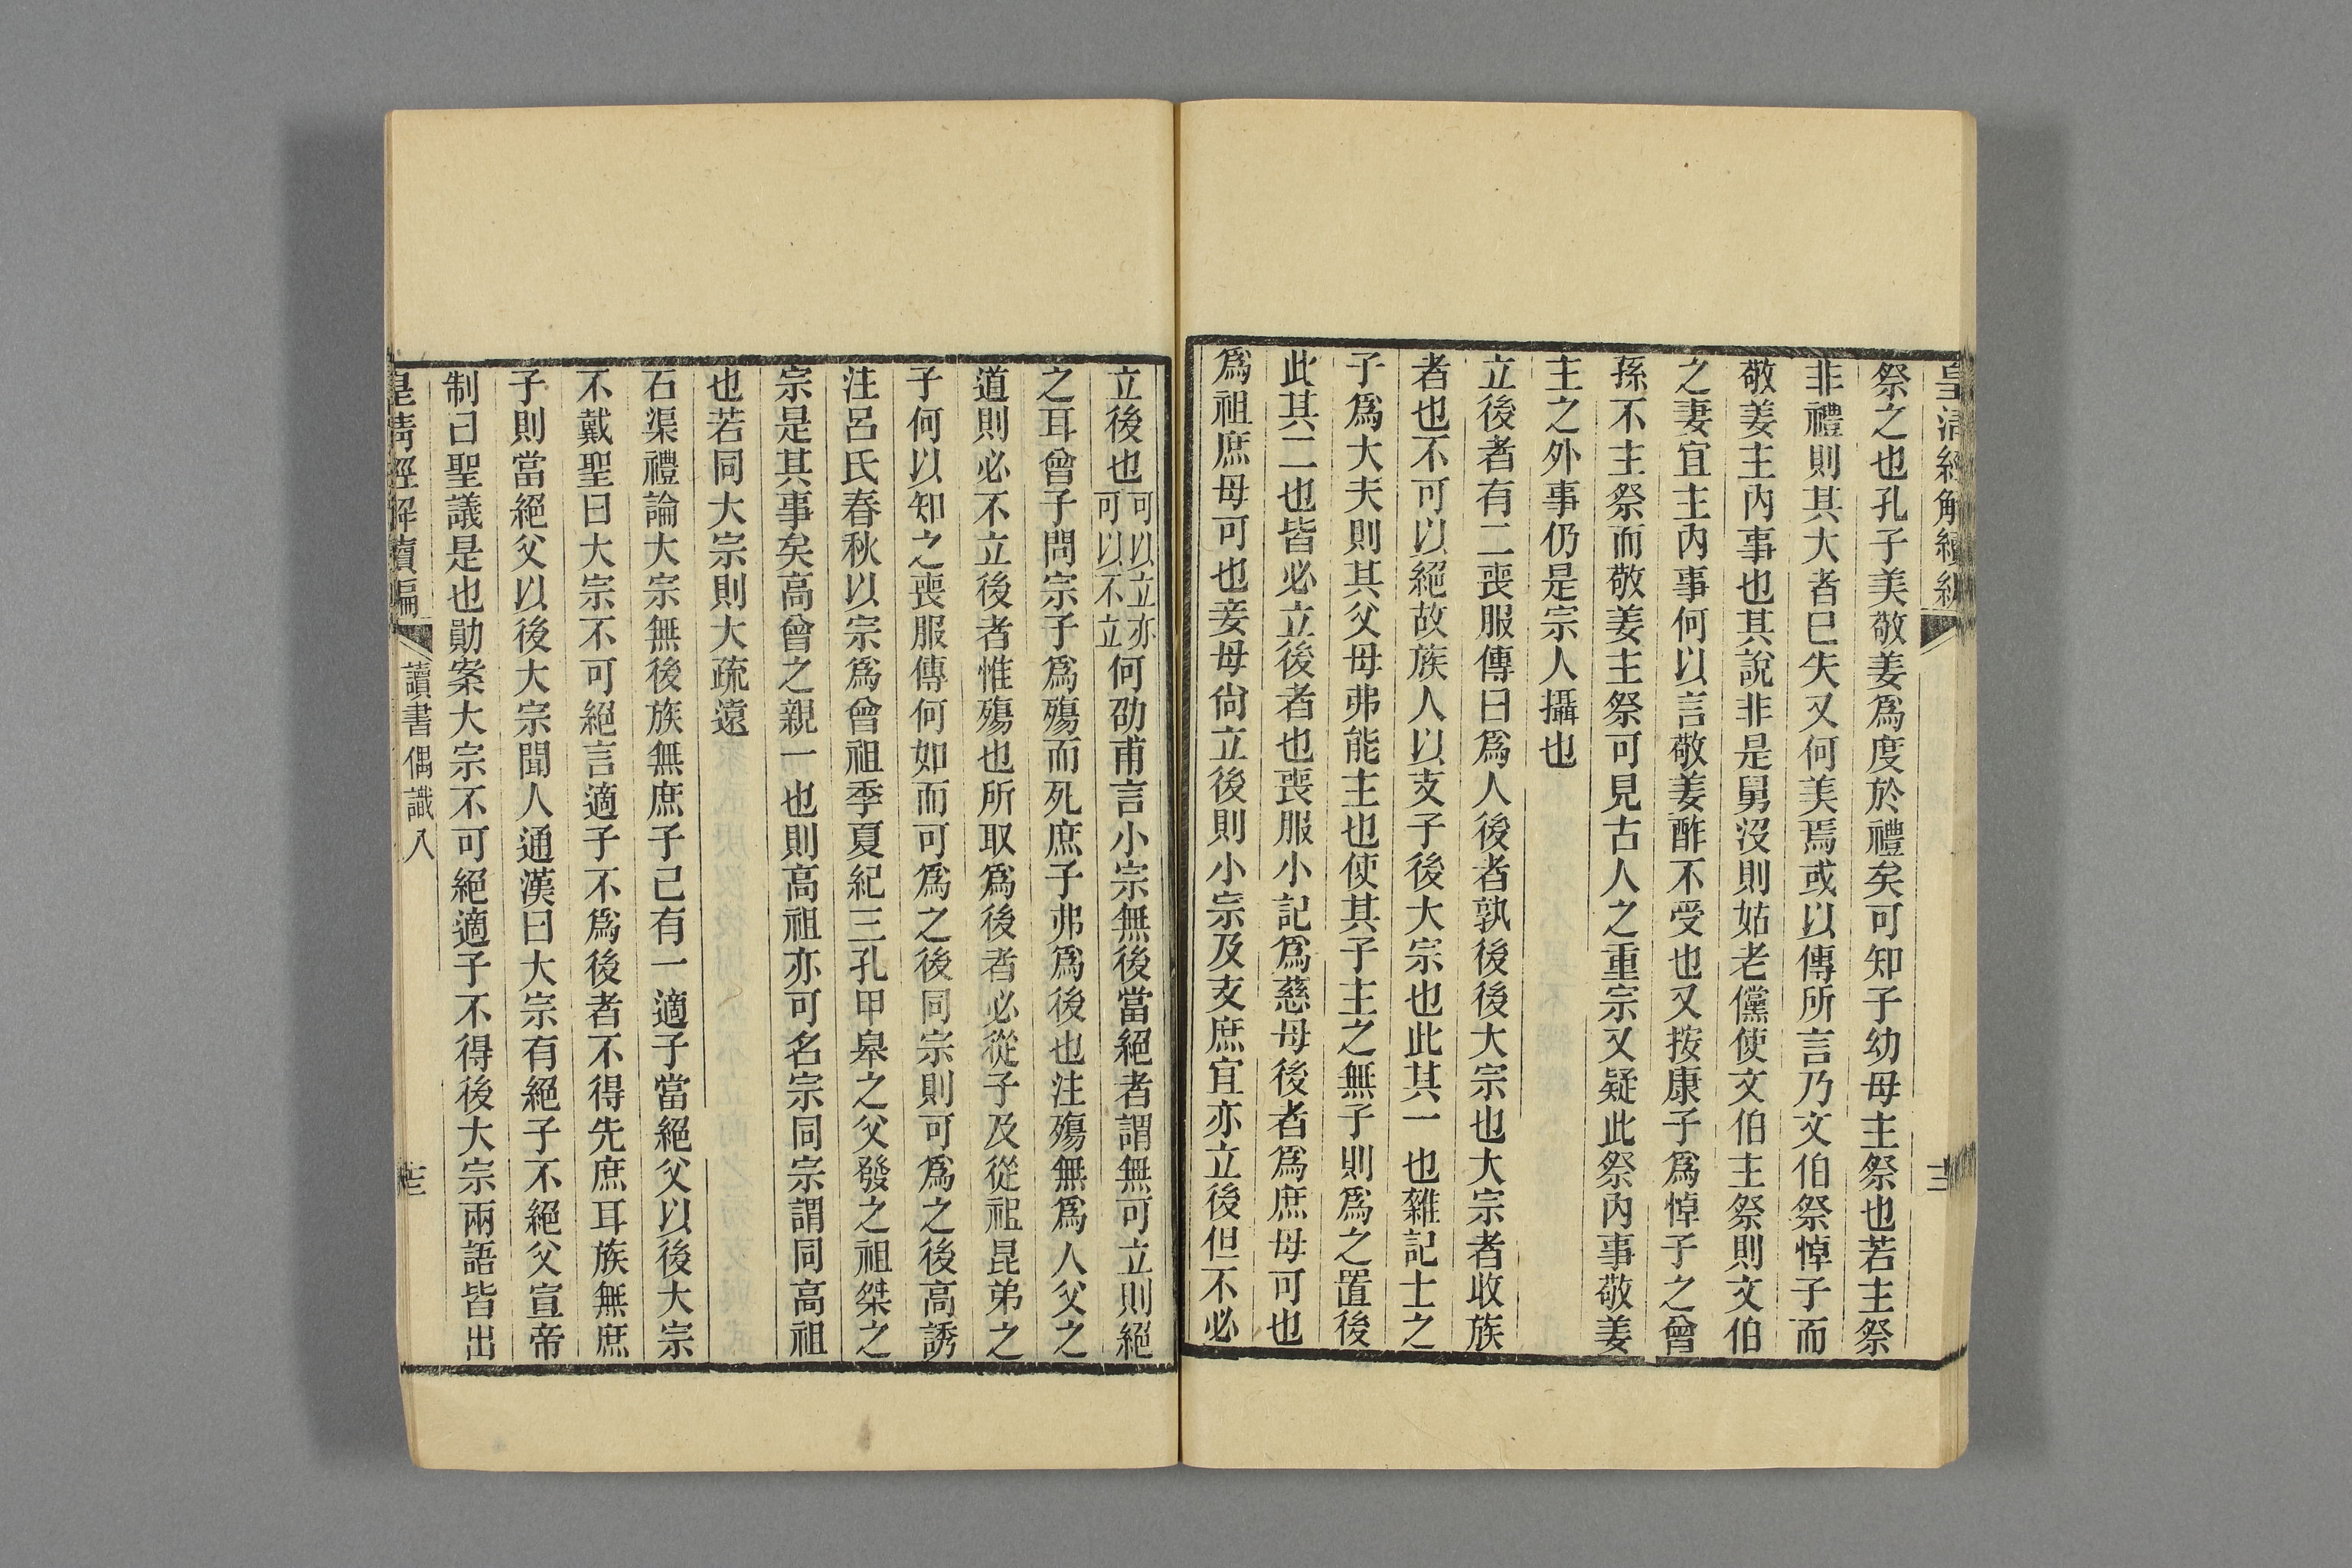 皇清經解續編
十二
祭之也孔子美敬姜爲度於禮矣可知子幼母主祭也若主祭
非禮則其大者已失又何美焉或以傳所言乃文伯祭悼子而
敬姜主內事也其說非是舅沒則姑老儻使文伯主祭則文伯
之妻宜主內事何以言敬姜酢不受也又按康子爲悼子之曾
孫不主祭而敬姜主祭可見古人之重宗又疑此祭內事敬姜
主之外事仍是宗人攝也
立後者有二喪服傳曰爲人後者孰後後大宗也大宗者收族
者也不可以絕故族人以支子後大宗也此其一也雜記士之
子爲大夫則其父母弗能主也使其子主之無子則爲之置後
此其二也皆必立後者也喪服小記爲慈母後者爲庶母可也
爲祖庶母可也妾母尙立後則小宗及支庶宜亦立後但不必
立後也可以立亦可以不立何劭甫言小宗無後當絕者謂無可立則絕
之耳曾子問宗子爲殤而死庶子弗爲後也注殤無爲人父之
道則必不立後者惟殤也所取爲後者必從子及從祖昆弟之
子何以知之喪服傳何如而可爲之後同宗則可爲之後高誘
注呂氏春秋以宗爲曾祖季夏紀三孔甲皋之父發之祖桀之
宗是其事矣高曾之親一也則高祖亦可名宗同宗謂同高祖
也若同大宗則大疏遠
石渠禮論大宗無後族無庶子己有一適子當絕父以後大宗
不戴聖曰大宗不可絕言適子不爲後者不得先庶耳族無庶
子則當絕父以後大宗聞人通漢曰大宗有絕子不絕父宣帝
制曰聖議是也勛案大宗不可絕適子不得後大宗兩語皆出
皇清經解續編
讀書偶識八
十三